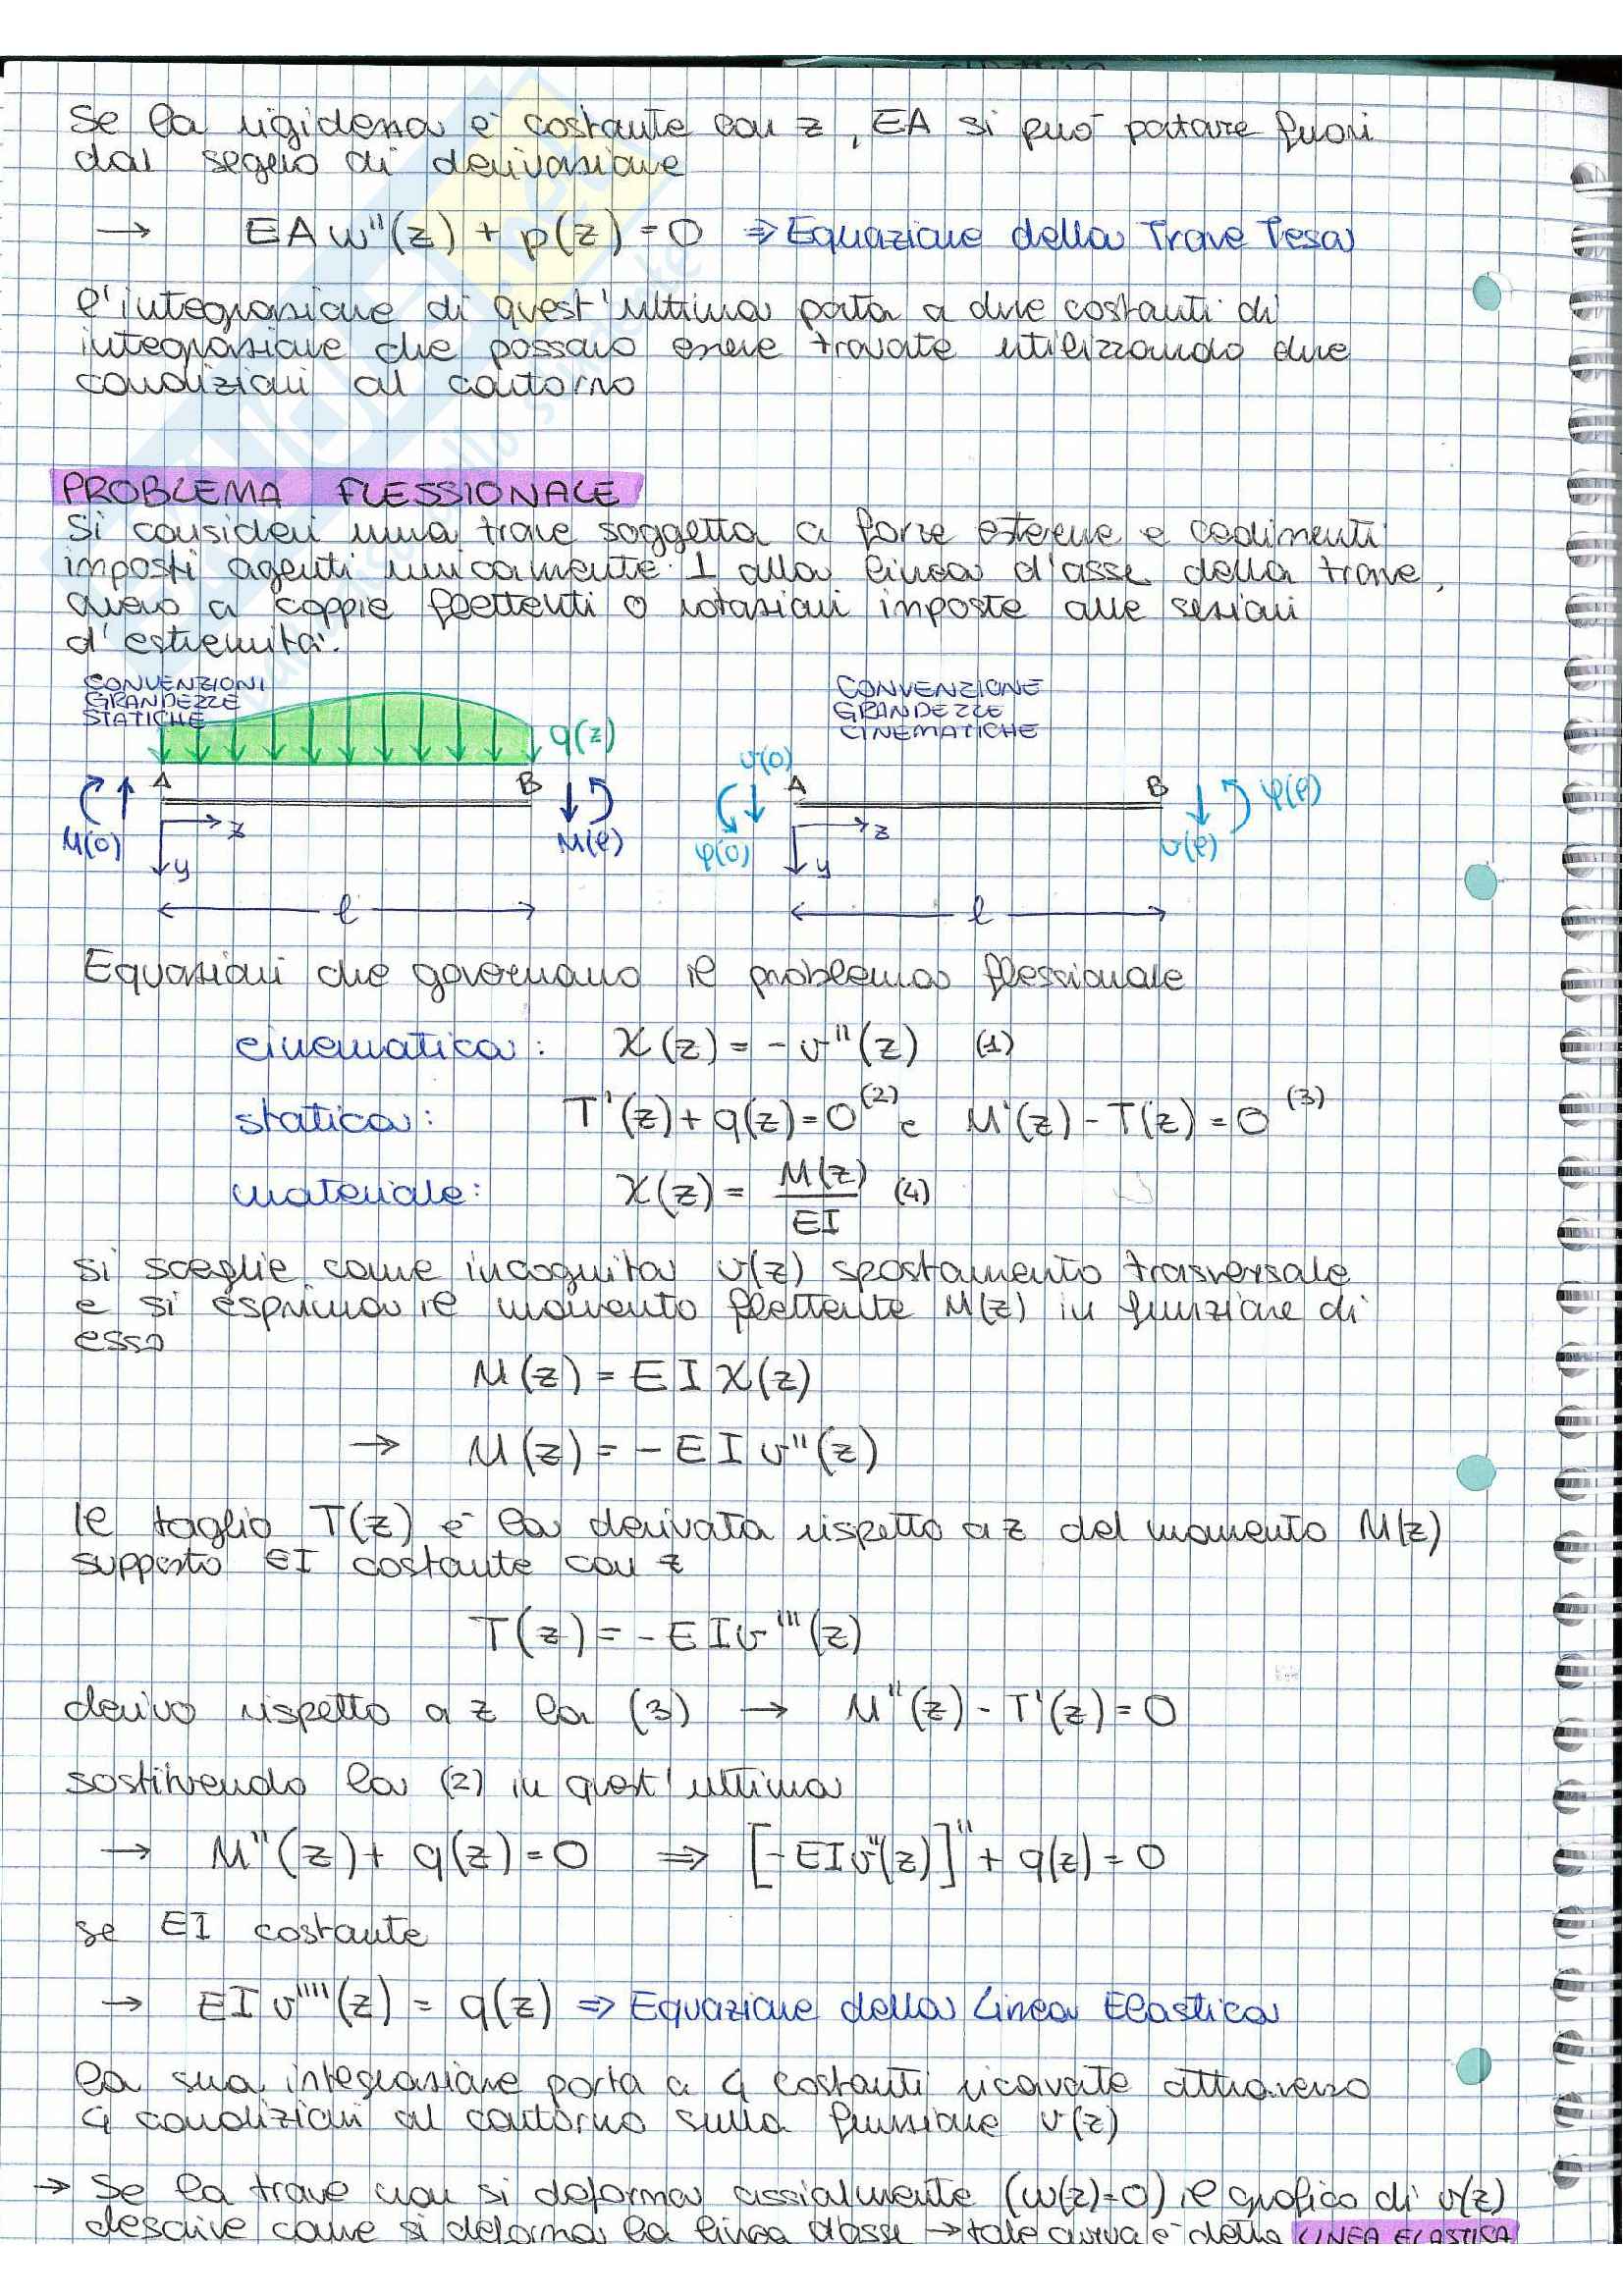 Se la rigidezza è costante con z, EA si può portare fuori
dal segno di derivazione
→ EA w''(z) + p(z) = 0 ⇒ Equazione della Trave Tesa
l'integrazione di quest'ultima porta a due costanti di
integrazione che possono essere trovate utilizzando due
condizioni al contorno
PROBLEMA FLESSIONALE
Si consideri una trave soggetta a forze esterne e cedimenti
imposti agenti unicamente ⊥ alla linea d'asse della trave,
ovvero a coppie flettenti o rotazioni imposte alle sezioni
d'estremità:
CONVENZIONI
GRANDEZZE
STATICHE
q(z)
A B
M(0) z M(l)
y
l
CONVENZIONE
GRANDEZZE
CINEMATICHE
v(0)
A B φ(l)
φ(0) z v(l)
y
l
Equazioni che governano il problema flessionale
cinematica: χ(z) = - v''(z) (1)
statica: T'(z) + q(z) = 0 (2) e M'(z) - T(z) = 0 (3)
materiale: χ(z) = M(z)/EI (4)
si sceglie come incognita v(z) spostamento trasversale
e si esprime il momento flettente M(z) in funzione di
esso
M(z) = EI χ(z)
→ M(z) = - EI v''(z)
Il taglio T(z) è la derivata rispetto a z del momento M(z)
supposto EI costante con z
T(z) = - EI v'''(z)
derivo rispetto a z la (3) → M''(z) - T'(z) = 0
sostituendo la (2) in quest'ultima
→ M''(z) + q(z) = 0 ⇒ [-EI v''(z)]'' + q(z) = 0
se EI costante
→ EI v''''(z) = q(z) ⇒ Equazione della Linea Elastica
la sua integrazione porta a 4 costanti ricavate attraverso
4 condizioni al contorno sulla funzione v(z)
→ Se la trave non si deforma assialmente (w(z)=0) il grafico di v(z)
descrive come si deforma la linea d'asse → tale curva è detta LINEA ELASTICA